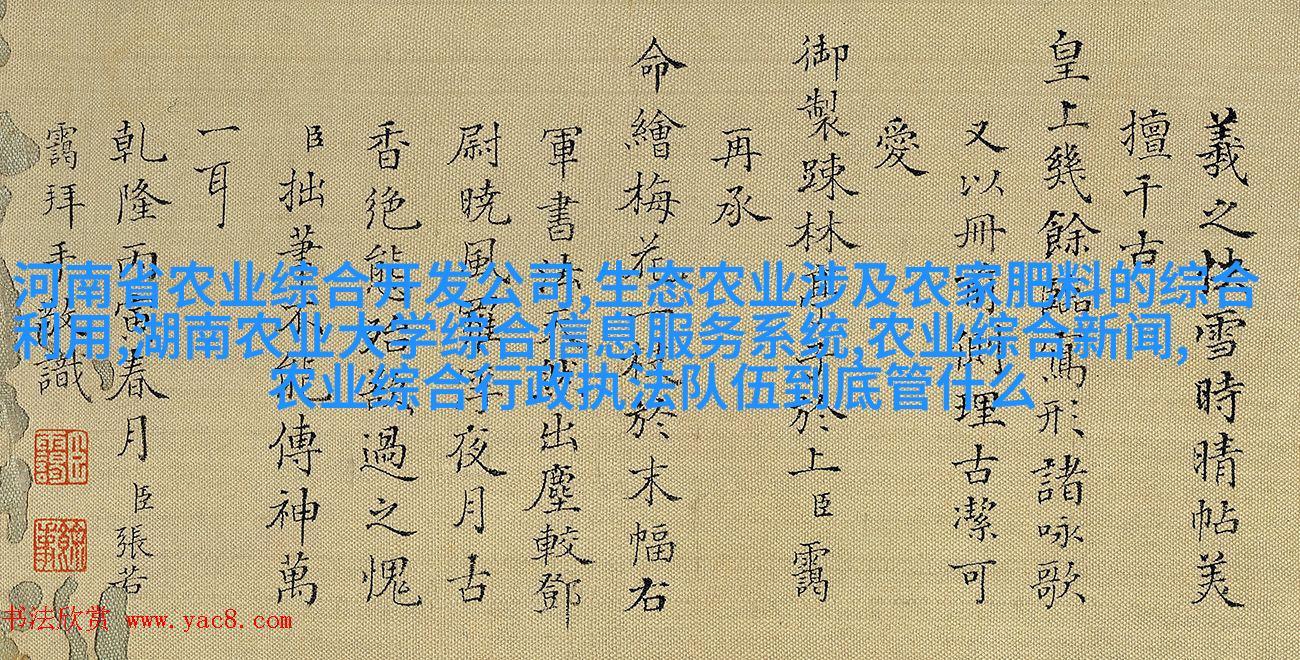 羲之快雪時晴帖美
擅千古
皇上幾餘臨寫形諸咏歌
又以冊有側理古潔可
愛
御製踈林
再承
命繪梅花一枝於末幅右
軍書法天然出塵較鄧
尉曉風羅浮夜月古
香絶能
臣拙筆不能傳神萬
一耳
乾隆丙寅春月臣張若
靄拜手敬識
河南省农业综合开发公司,生态农业涉及农家肥料的综合
利用,湖南农业大学综合信息服务系统,农业综合新闻,
农业综合行政执法队伍到底管什么
书法欣赏 www.yac8.com